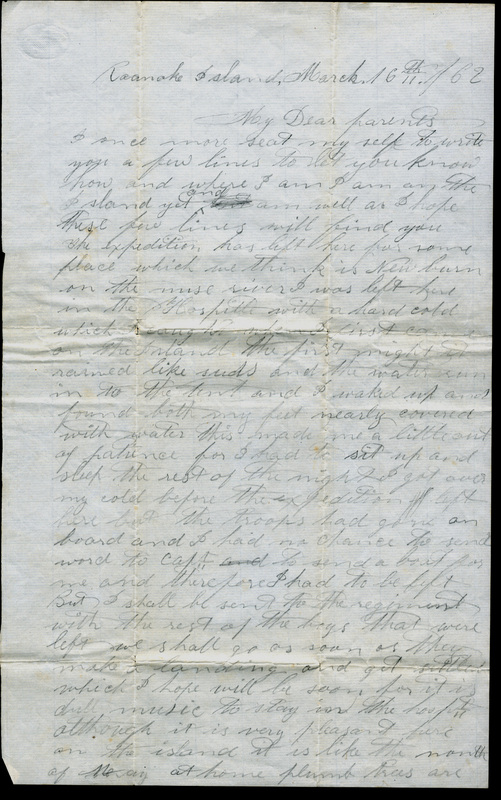 Roanoke Island, March, 16th,/62
My Dear parents
I once more seat my self to write
you a few lines to let you know
how, and where I am I am on the
Island yet and am well as I hope
these few lines will find you
the Expedition has left here for some
place which we think is New burn
on the nuse river I was left here
in the Hospittle with a hard cold
which I caught when I first come
on the Island the first night it
rained like suds and the water run
in to the tent and I waked up and
found both my feet nearly covered
with water this made me a little out
of patience for I had to sit up and
sleep the rest of the night I got over
my cold before the expedition left
here but the troops had gone on
board and I had no chance to send
word to Capt and to send a boat for
me and therefore I had to be left
But I shall be sent to the regiment
with the rest of the boys that were
left we shall go as soon as they
make a landing and get
which I hope will be soon for it is
dull music to stay in the
although it is very pleasant here
on the island it is like the month
of May at home plumb trees are